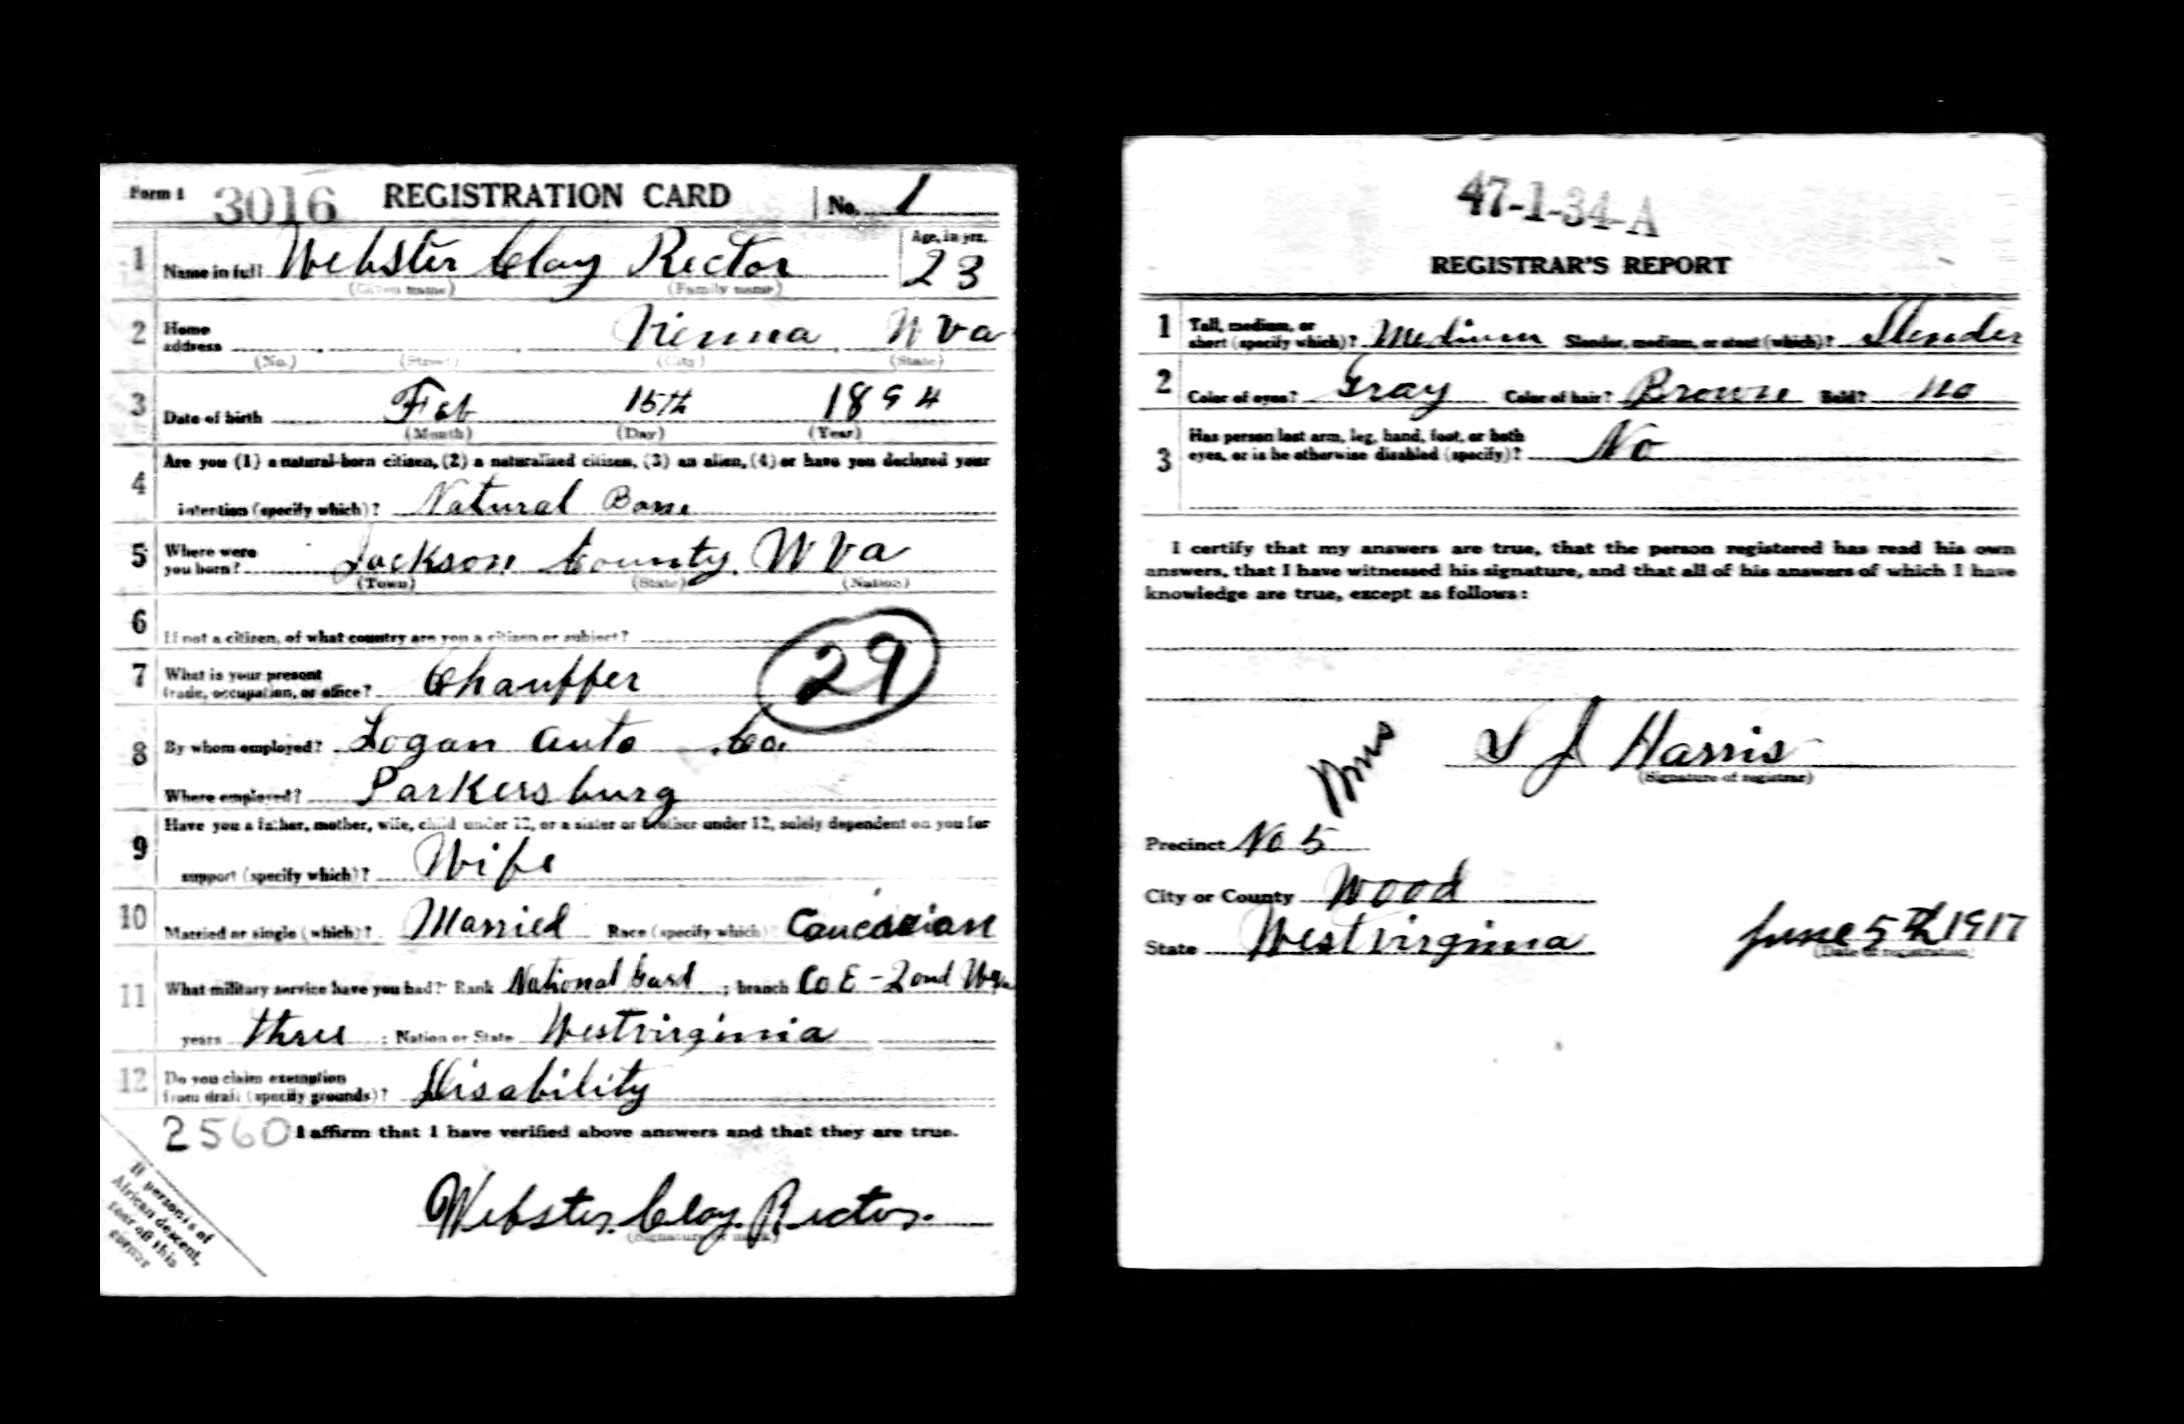 Form 1 3016 REGISTRATION CARD No. 1
1 Name in full Webster Clay Rector Age, in yrs. 23
(Given name) (Family name)
2 Home address Vienna W Va
(No.) (Street) (City) (State)
3 Date of birth Feb 15th 1894
(Month) (Day) (Year)
4 Are you (1) a natural-born citizen, (2) a naturalized citizen, (3) an alien, (4) or have you declared your
intention (specify which)? Natural Born
5 Where were you born? Jackson County. W Va
(Town) (State) (Nation)
6 If not a citizen, of what country are you a citizen or subject?
7 What is your present trade, occupation, or office? Chauffer 29
8 By whom employed? Logan Auto Co.
Where employed? Parkersburg
9 Have you a father, mother, wife, child under 12, or a sister or brother under 12, solely dependent on you for
support (specify which)? Wife
10 Married or single (which)? Married Race (specify which) Caucasian
11 What military service have you had? Rank National Gard ; branch Co E - 2ond W Va
years three ; Nation or State Westvirginia
12 Do you claim exemption from draft (specify grounds)? Disability
2560 I affirm that I have verified above answers and that they are true.
Webster. Clay. Rector.
(Signature or mark)
If person is of
African descent,
tear off this
corner
47-1-34-A
REGISTRAR'S REPORT
1 Tall, medium, or short (specify which)? Medium Slender, medium, or stout (which)? Slender
2 Color of eyes? Gray Color of hair? Brown Bald? No
3 Has person lost arm, leg, hand, foot, or both
eyes, or is he otherwise disabled (specify)? No
I certify that my answers are true, that the person registered has read his own
answers, that I have witnessed his signature, and that all of his answers of which I have
knowledge are true, except as follows:
J Harris
(Signature of registrar)
Precinct No 5
City or County Wood
State Westvirginia June 5th 1917
(Date of registration)